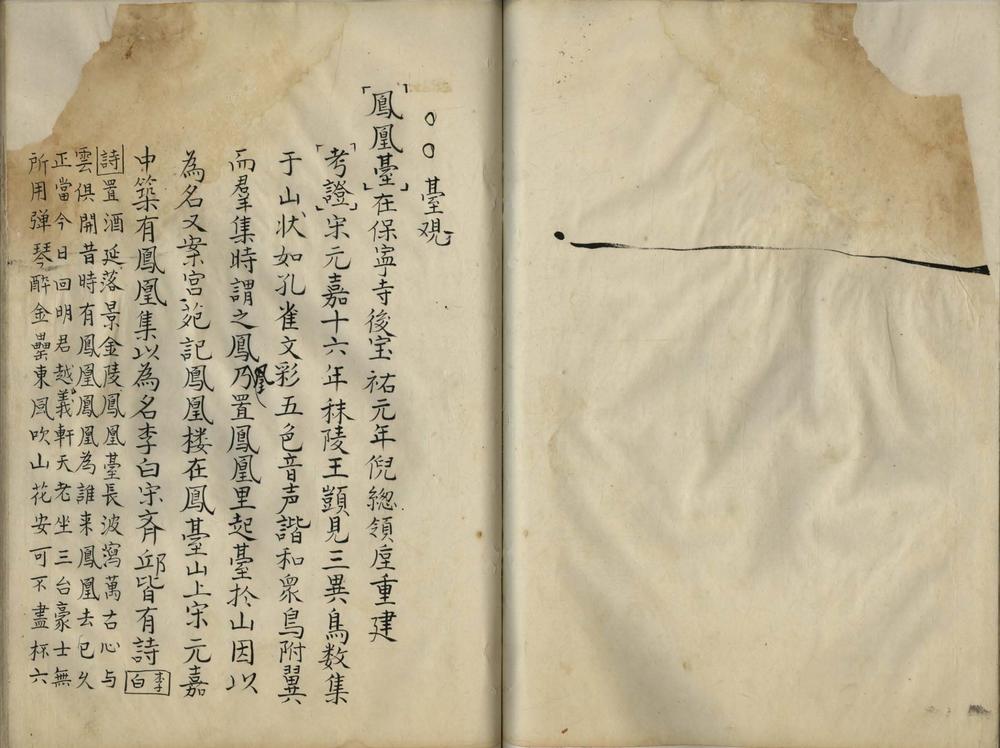 ○○臺观
「鳳凰臺」在保寧寺後宝祐元年倪總領垕重建
「考證」宋元嘉十六年秣陵王顗見三異鳥数集
于山状如孔雀文彩五色音声諧和衆鳥附翼
而羣集時謂之鳳凰乃置鳳凰里起臺於山因以
為名又案宫苑記鳳凰楼在鳳臺山上宋元嘉
中築有鳳凰集以為名李白宋齊邱皆有詩李白
詩置酒延落景金陵鳳凰臺長波瀉萬古心与
雲俱開昔時有鳳凰鳳凰為誰来鳳凰去已久
正當今日回明君越羲軒天老坐三台豪士無
所用弹琴醉金罍東風吹山花安可不盡杯六